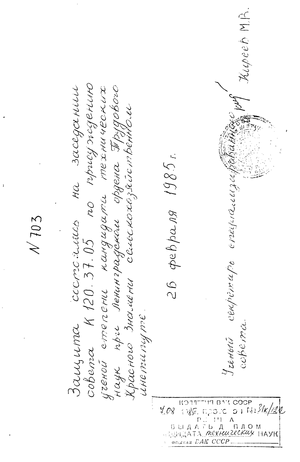 N 703
Защита состоялась на заседании
совета К 120.37.05 по присуждению
ученой степени кандидата технических
наук при Ленинградском ордена Трудового
Красного Знамени сельскохозяйственном
институте.
26 февраля 1985 г.
Ученый секретарь специализированного
совета
Киреев М.В.
ВАК СССР
ВЫДАТЬ ДИПЛОМ
КАНДИДАТА технических НАУК
ВАК СССР